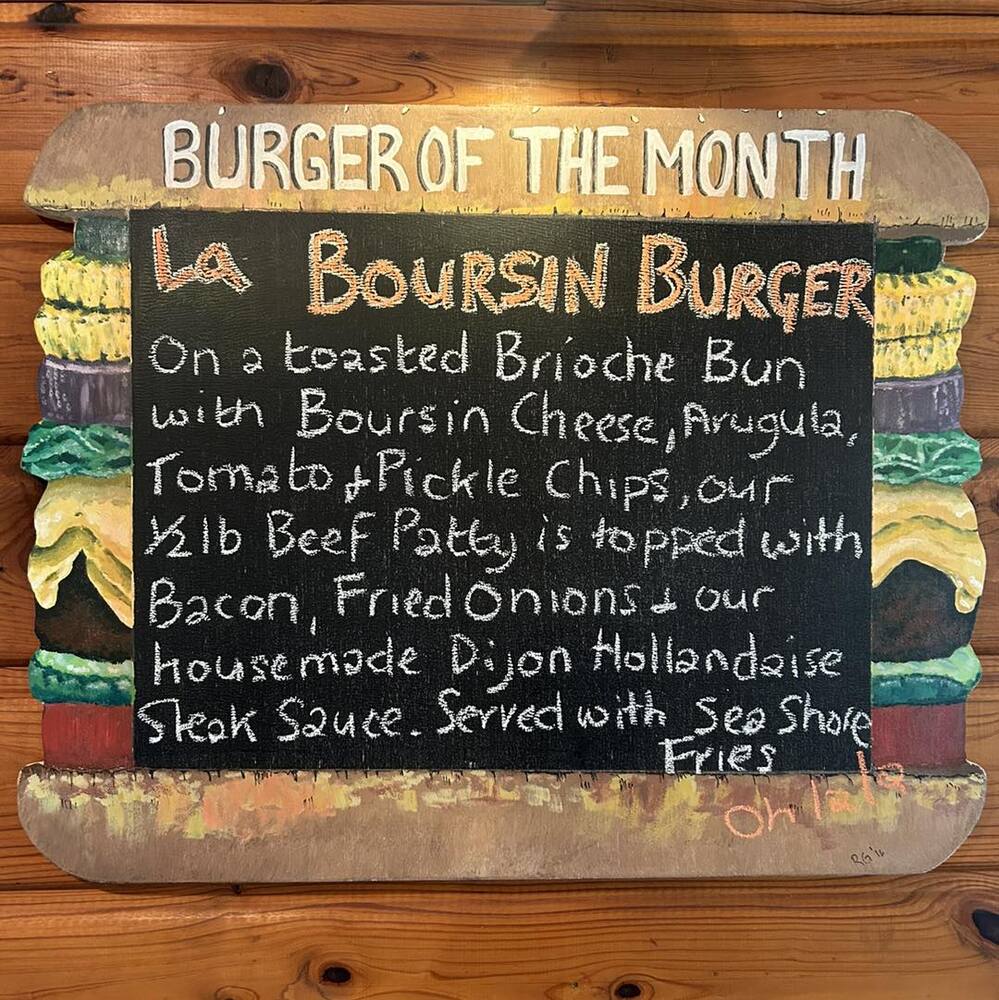 BURGER OF THE MONTH
La BOURSIN BURGER
On a toasted Brioche Bun
with Boursin Cheese, Arugula,
Tomato + Pickle Chips, our
1/2 lb Beef Patty is topped with
Bacon, Fried Onions + our
housemade Dijon Hollandaise
Steak Sauce. Served with Sea Shore
Fries
Oh la la
RG '16